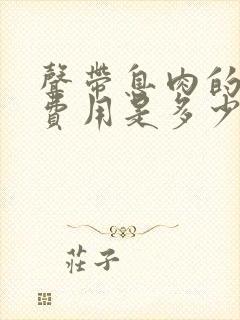 聲帶息肉的
費用是多少
莊子